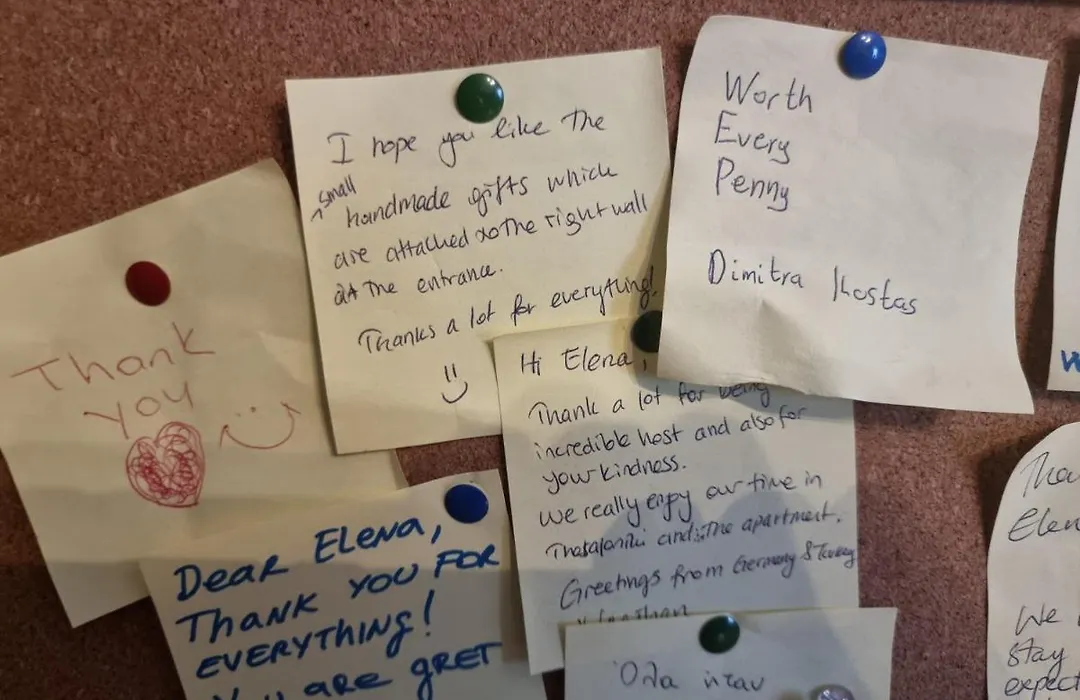 Thank
you
I hope you like the
small
handmade gifts which
are attached to the right wall
at the entrance.
Thanks a lot for everything!
Worth
Every
Penny
Dimitra Kostas
Hi Elena,
Thank a lot for being
incredible host and also for
your kindness.
We really enjoy our time in
and the apartment.
Greetings from Germany & Turkey
DEAR ELENA,
THANK YOU FOR
EVERYTHING!
YOU ARE GRET
Όλα ήταν
Elen
We
stay
expect